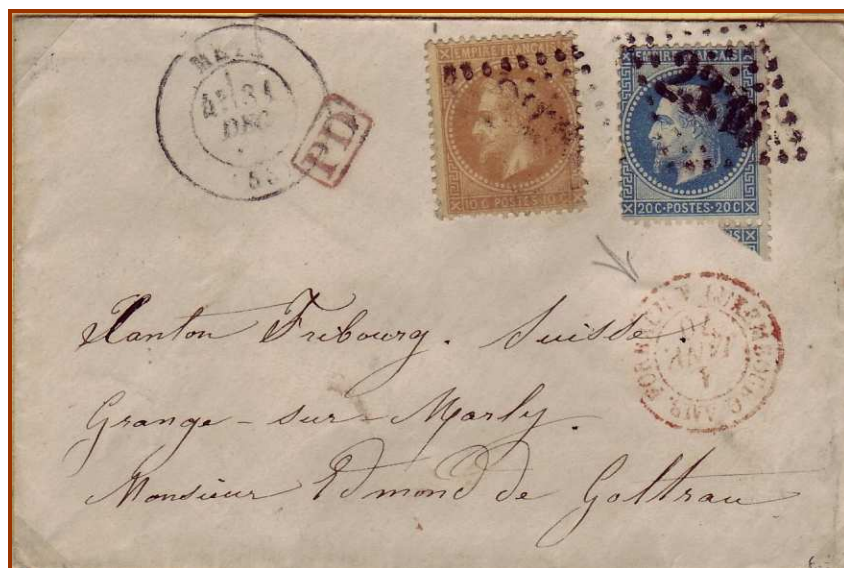 METZ
31
DEC
PD
EMPIRE FRANÇAIS
10 C·POSTES·10 C
EMPIRE FRANÇAIS
20 C·POSTES·20 C
LUXEMBOURG
1
JANV
70
Canton Fribourg. Suisse
Grange-sur-Marly.
Monsieur Edmond de Gottrau